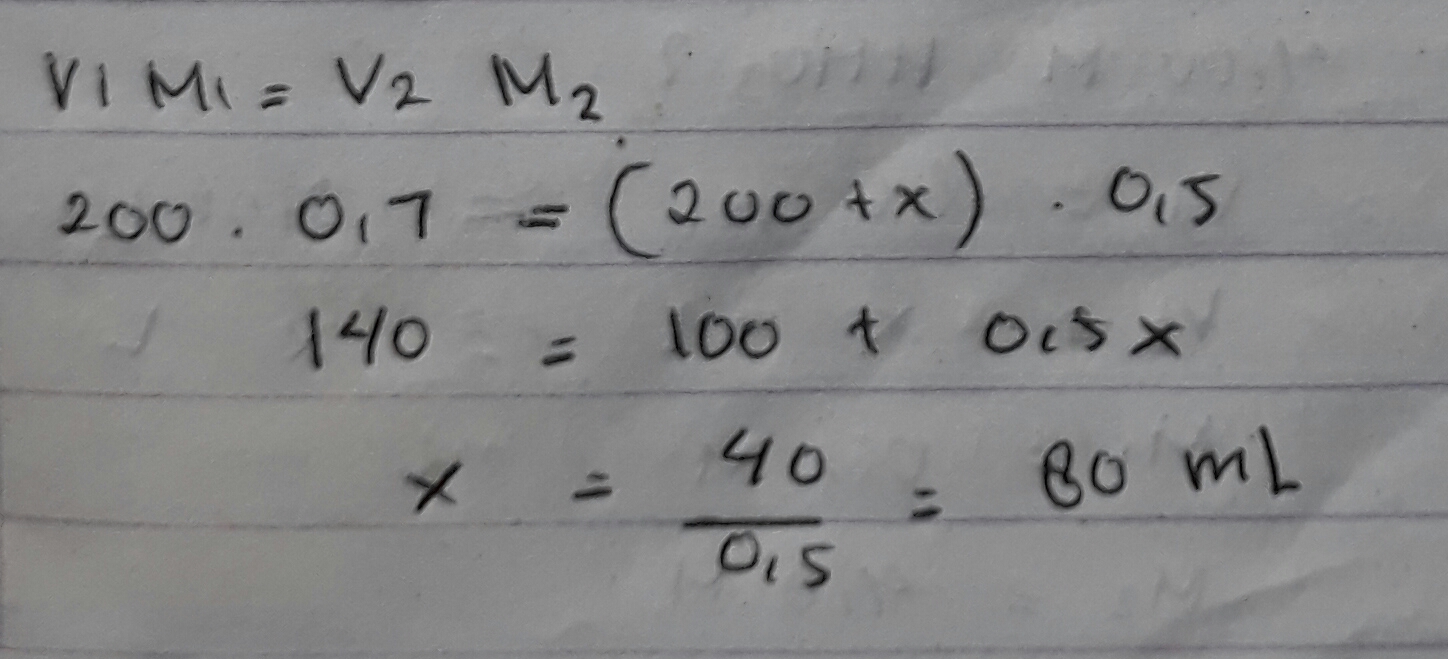 V1 M1 = V2 M2
200 . 0,7 = (200 + x) . 0,5
140 = 100 + 0,5 x
x = 40/0,5 = 80 mL